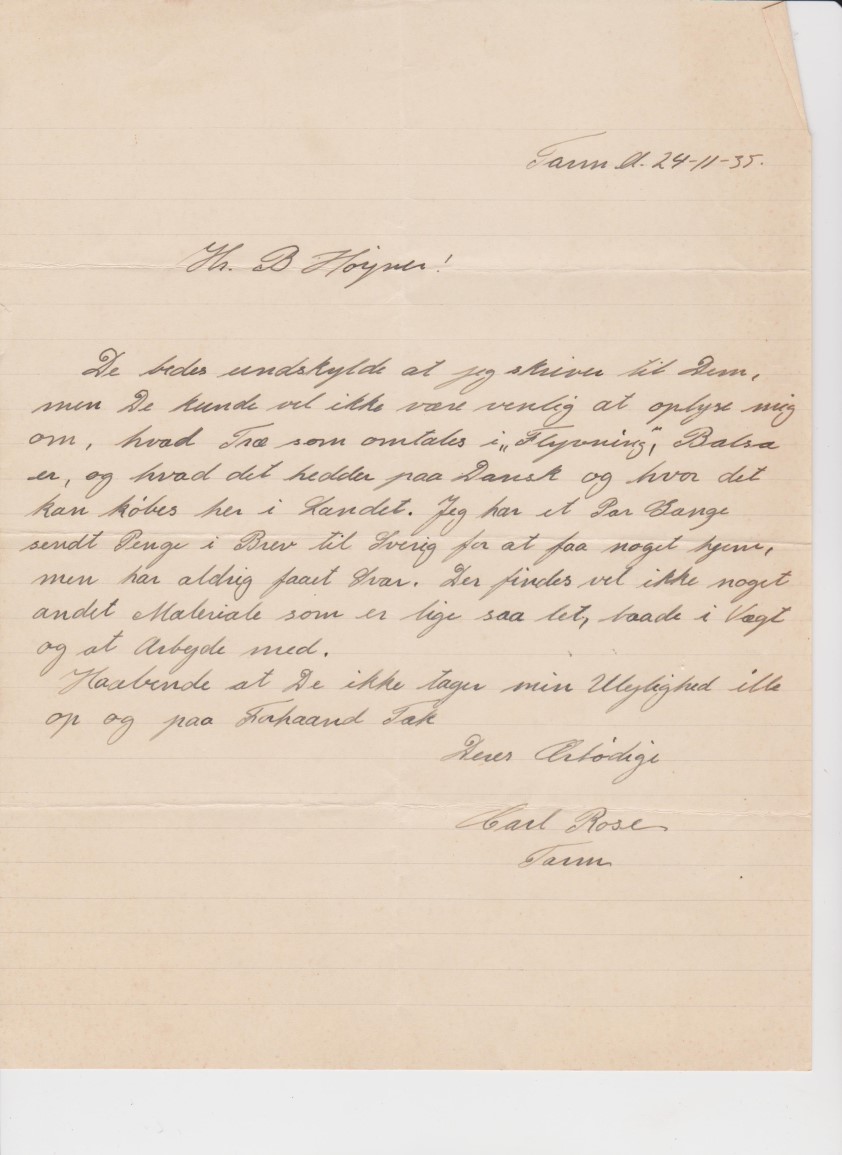 Tarm d. 24-11-35.
Hr. B Höyner!
De bedes undskylde at jeg skriver til Dem,
men De kunde vel ikke være venlig at oplyse mig
om, hvad Træ som omtales i „Flyvning", Balsa
er, og hvad det hedder paa Dansk og hvor det
kan købes her i Landet. Jeg har et Par Gange
sendt Penge i Brev til Sverig for at faa noget hjem,
men har aldrig faaet Svar. Der findes vel ikke noget
andet Materiale som er lige saa let, baade i Vægt
og at Arbejde med.
Haabende at De ikke tager min Ulejlighed ille
op og paa Forhaand Tak
Deres Ærbödige
Carl Rose
Tarm